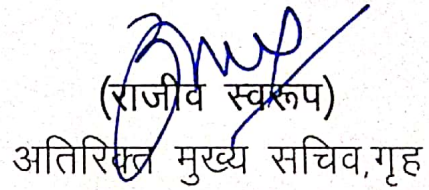 (राजीव स्वरूप)
अतिरिक्त मुख्य सचिव,गृह